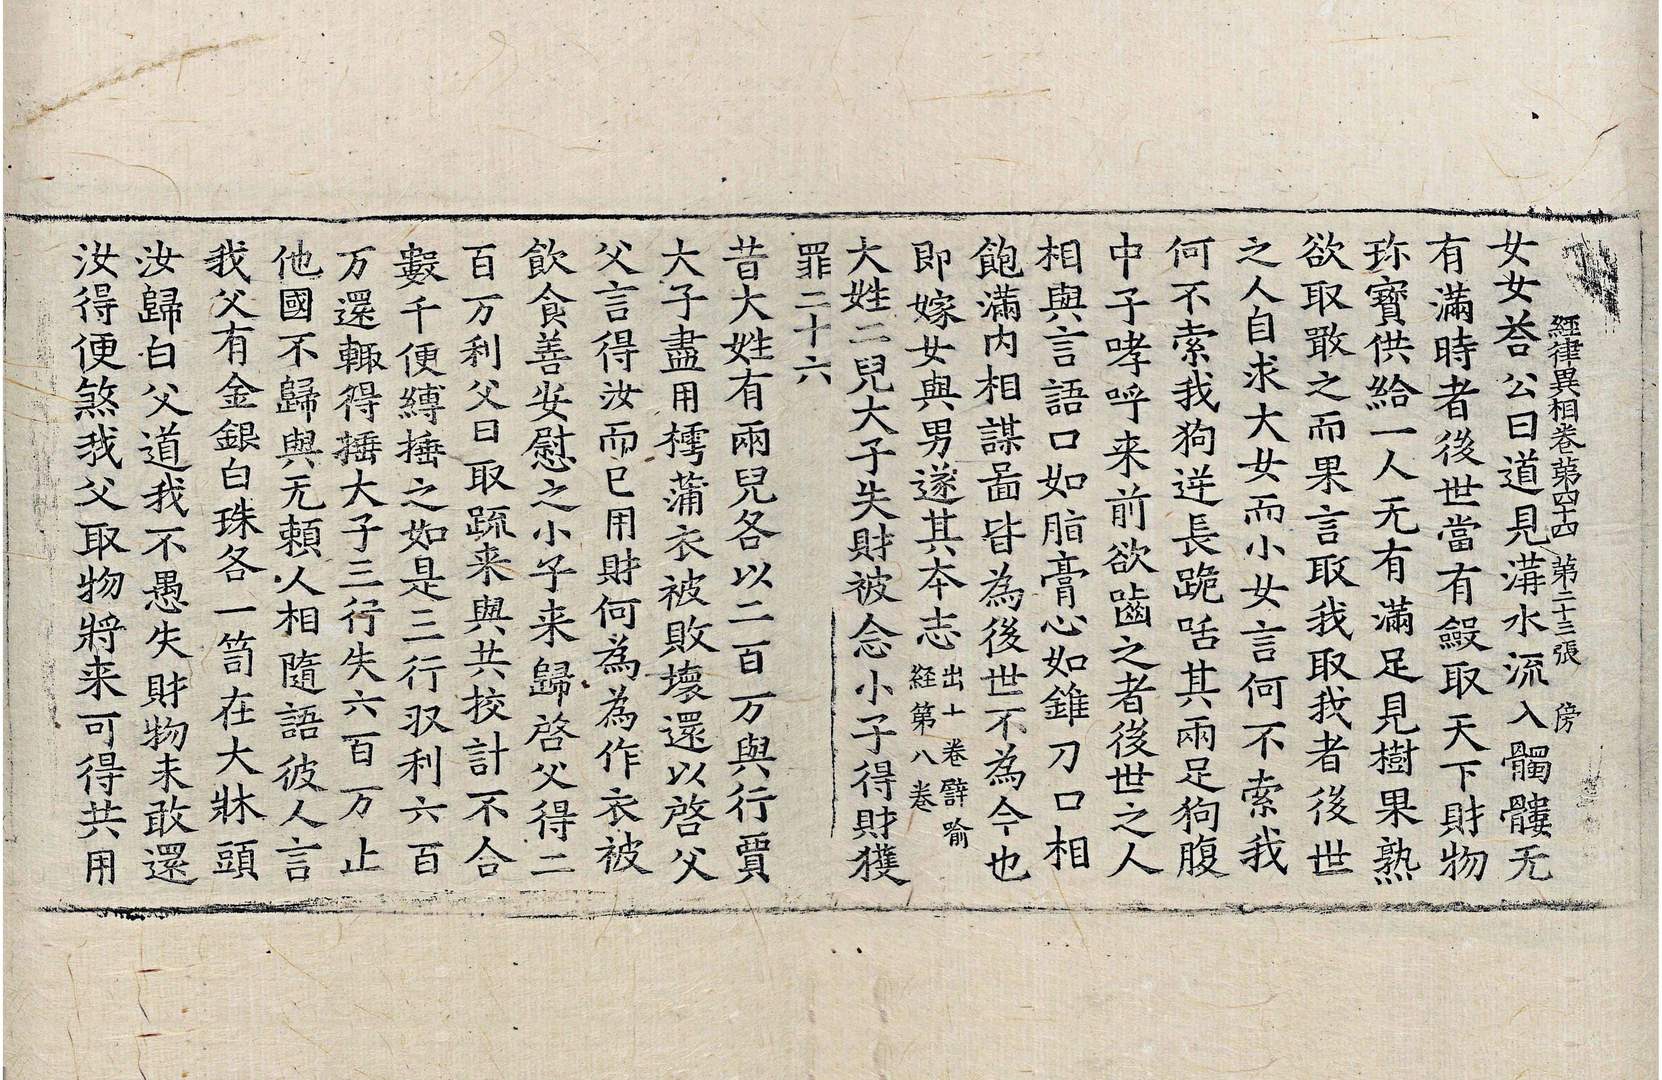 經律異相卷第四十四 第二十三張 傍
女女荅公曰道見溝水流入髑髏无
有滿時者後世當有斂取天下財物
珎寶供給一人无有滿足見樹果熟
欲取噉之而果言取我取我者後世
之人自求大女而小女言何不索我
何不索我狗逆長跪咶其兩足狗腹
中子哮呼来前欲嚙之者後世之人
相與言語口如脂膏心如錐刀口相
飽滿内相謀啚皆為後世不為今也
即嫁女與男遂其本志出十卷譬喻
経第八卷
大姓二兒大子失財被念小子得財獲
罪二十六
昔大姓有兩兒各以二百万與行賈
大子盡用樗蒲衣被敗壞還以啓父
父言得汝而已用財何為為作衣被
飲食善安慰之小子来歸啓父得二
百万利父曰取䟽来與共挍計不合
數千便縛捶之如是三行収利六百
万還輙得捶大子三行失六百万止
他國不歸與无賴人相隨語彼人言
我父有金銀白珠各一笥在大牀頭
汝歸白父道我不愚失財物未敢還
汝得便煞我父取物將来可得共用